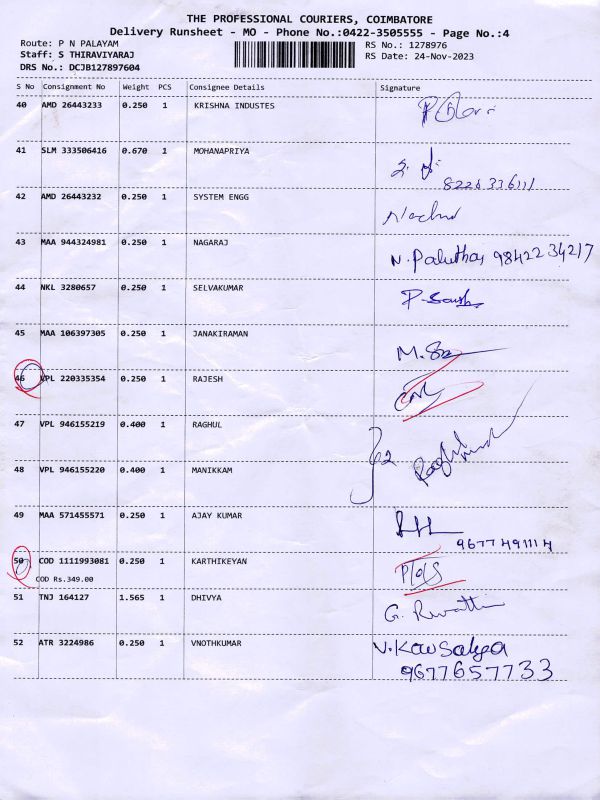 THE PROFESSIONAL COURIERS, COIMBATORE
Delivery Runsheet - MO - Phone No.:0422-3505555 - Page No.:4
Route: P N PALAYAM
Staff: S THIRAVIYARAJ
DRS No.: DCJB127897604
RS No.: 1278976
RS Date: 24-Nov-2023
S No Consignment No Weight PCS Consignee Details Signature
40 AMD 26443233 0.250 1 KRISHNA INDUSTES
41 SLM 333506416 0.670 1 MOHANAPRIYA
8226336111
42 AMD 26443232 0.250 1 SYSTEM ENGG
43 MAA 944324981 0.250 1 NAGARAJ
98422 34217
44 NKL 3280657 0.250 1 SELVAKUMAR
45 MAA 106397305 0.250 1 JANAKIRAMAN
46 VPL 220335354 0.250 1 RAJESH
47 VPL 946155219 0.400 1 RAGHUL
48 VPL 946155220 0.400 1 MANIKKAM
49 MAA 571455571 0.250 1 AJAY KUMAR
50 COD 1111993081 0.250 1 KARTHIKEYAN
COD Rs.349.00
51 TNJ 164127 1.565 1 DHIVYA
52 ATR 3224986 0.250 1 VNOTHKUMAR V.Kowsalya
9677657733